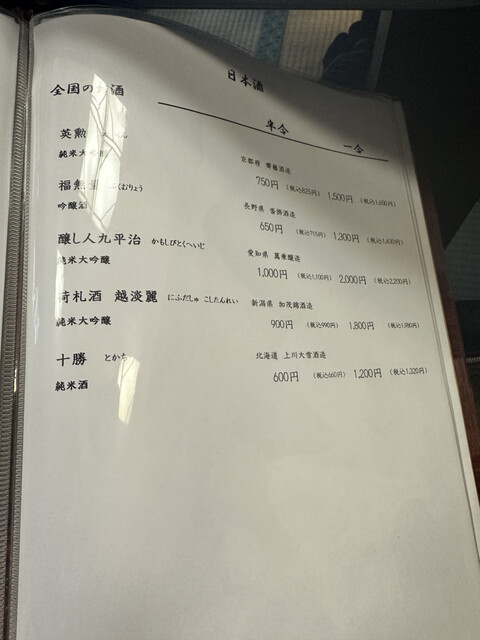 日本酒
全国の 酒
半合 一合
英勲
京都府 齊藤酒造
純米大吟醸
750円 (税込825円) 1,500円 (税込1,650円)
福無量 ふくむりょう
長野県 沓掛酒造
吟醸酒
650円 (税込715円) 1,300円 (税込1,430円)
醸し人九平治 かもしびとくへいじ
愛知県 萬乗醸造
純米大吟醸
1,000円 (税込1,100円) 2,000円 (税込2,200円)
荷札酒 越淡麗 にふだしゅ こしたんれい
新潟県 加茂錦酒造
純米大吟醸
900円 (税込990円) 1,800円 (税込1,980円)
十勝 とかち
北海道 上川大雪酒造
純米酒
600円 (税込660円) 1,200円 (税込1,320円)